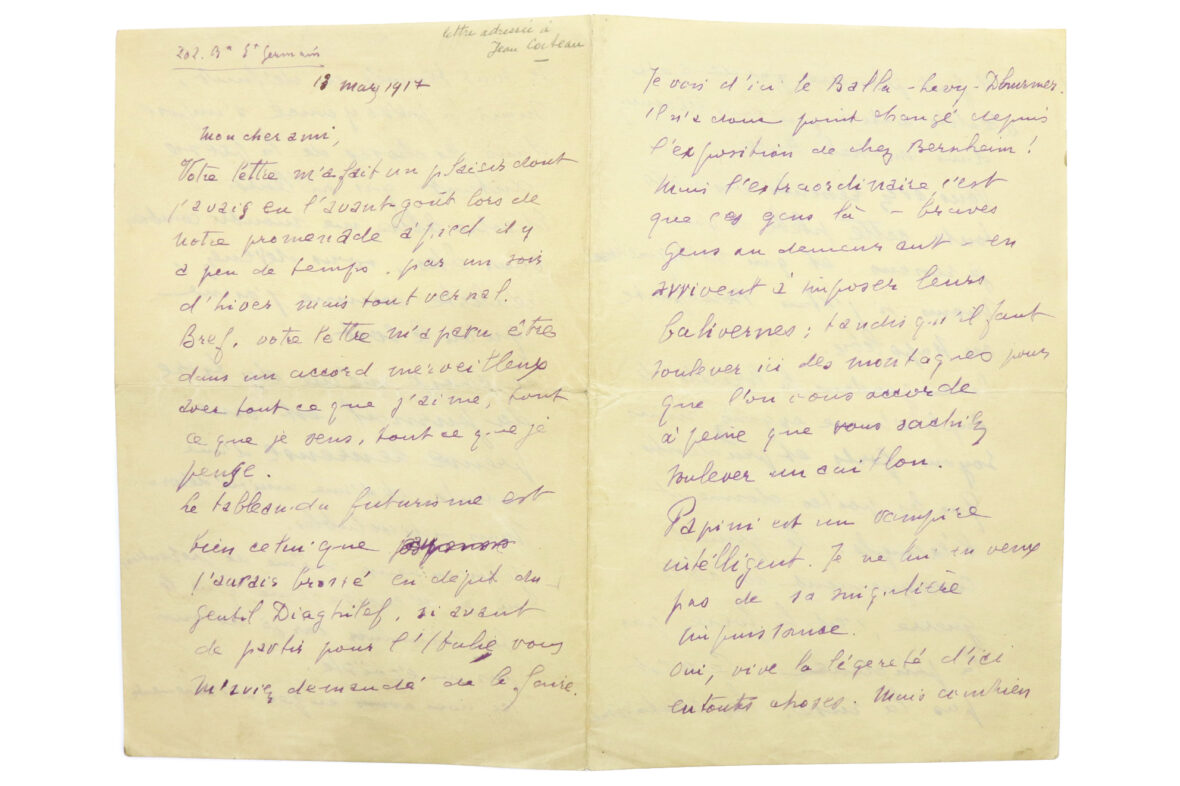 202. Bd St Germain
lettre adressée à
Jean Cocteau
13 mars 1917
Mon cher ami,
Votre lettre m'a fait un plaisir dont
j'avais eu l'avant-goût lors de
notre promenade à pied il y
a peu de temps, par un soir
d'hiver mais tout vernal.
Bref, votre lettre m'a paru être
dans un accord merveilleux
avec tout ce que j'aime, tout
ce que je sens, tout ce que je
pense.
Le tableau du futurisme est
bien celui que
j'aurais brossé en dépit du
gentil Diaghilef, si avant
de partir pour l'Italie vous
m'aviez demandé de le faire.
Je vois d'ici le Balla-Levy-Dhurmer.
Il n'a donc point changé depuis
l'exposition de chez Bernheim!
Mais l'extraordinaire c'est
que ces gens là – braves
gens au demeurant – en
arrivent à imposer leurs
balivernes; tandis qu'il faut
soulever ici des montagnes pour
que l'on vous accorde
à peine que vous sachiez
soulever un caillou.
Papini est un vampire
intelligent. Je ne lui en veux
pas de sa singulière
impuissance.
Oui, vive la légereté d'ici
en toutes choses. Mais combien